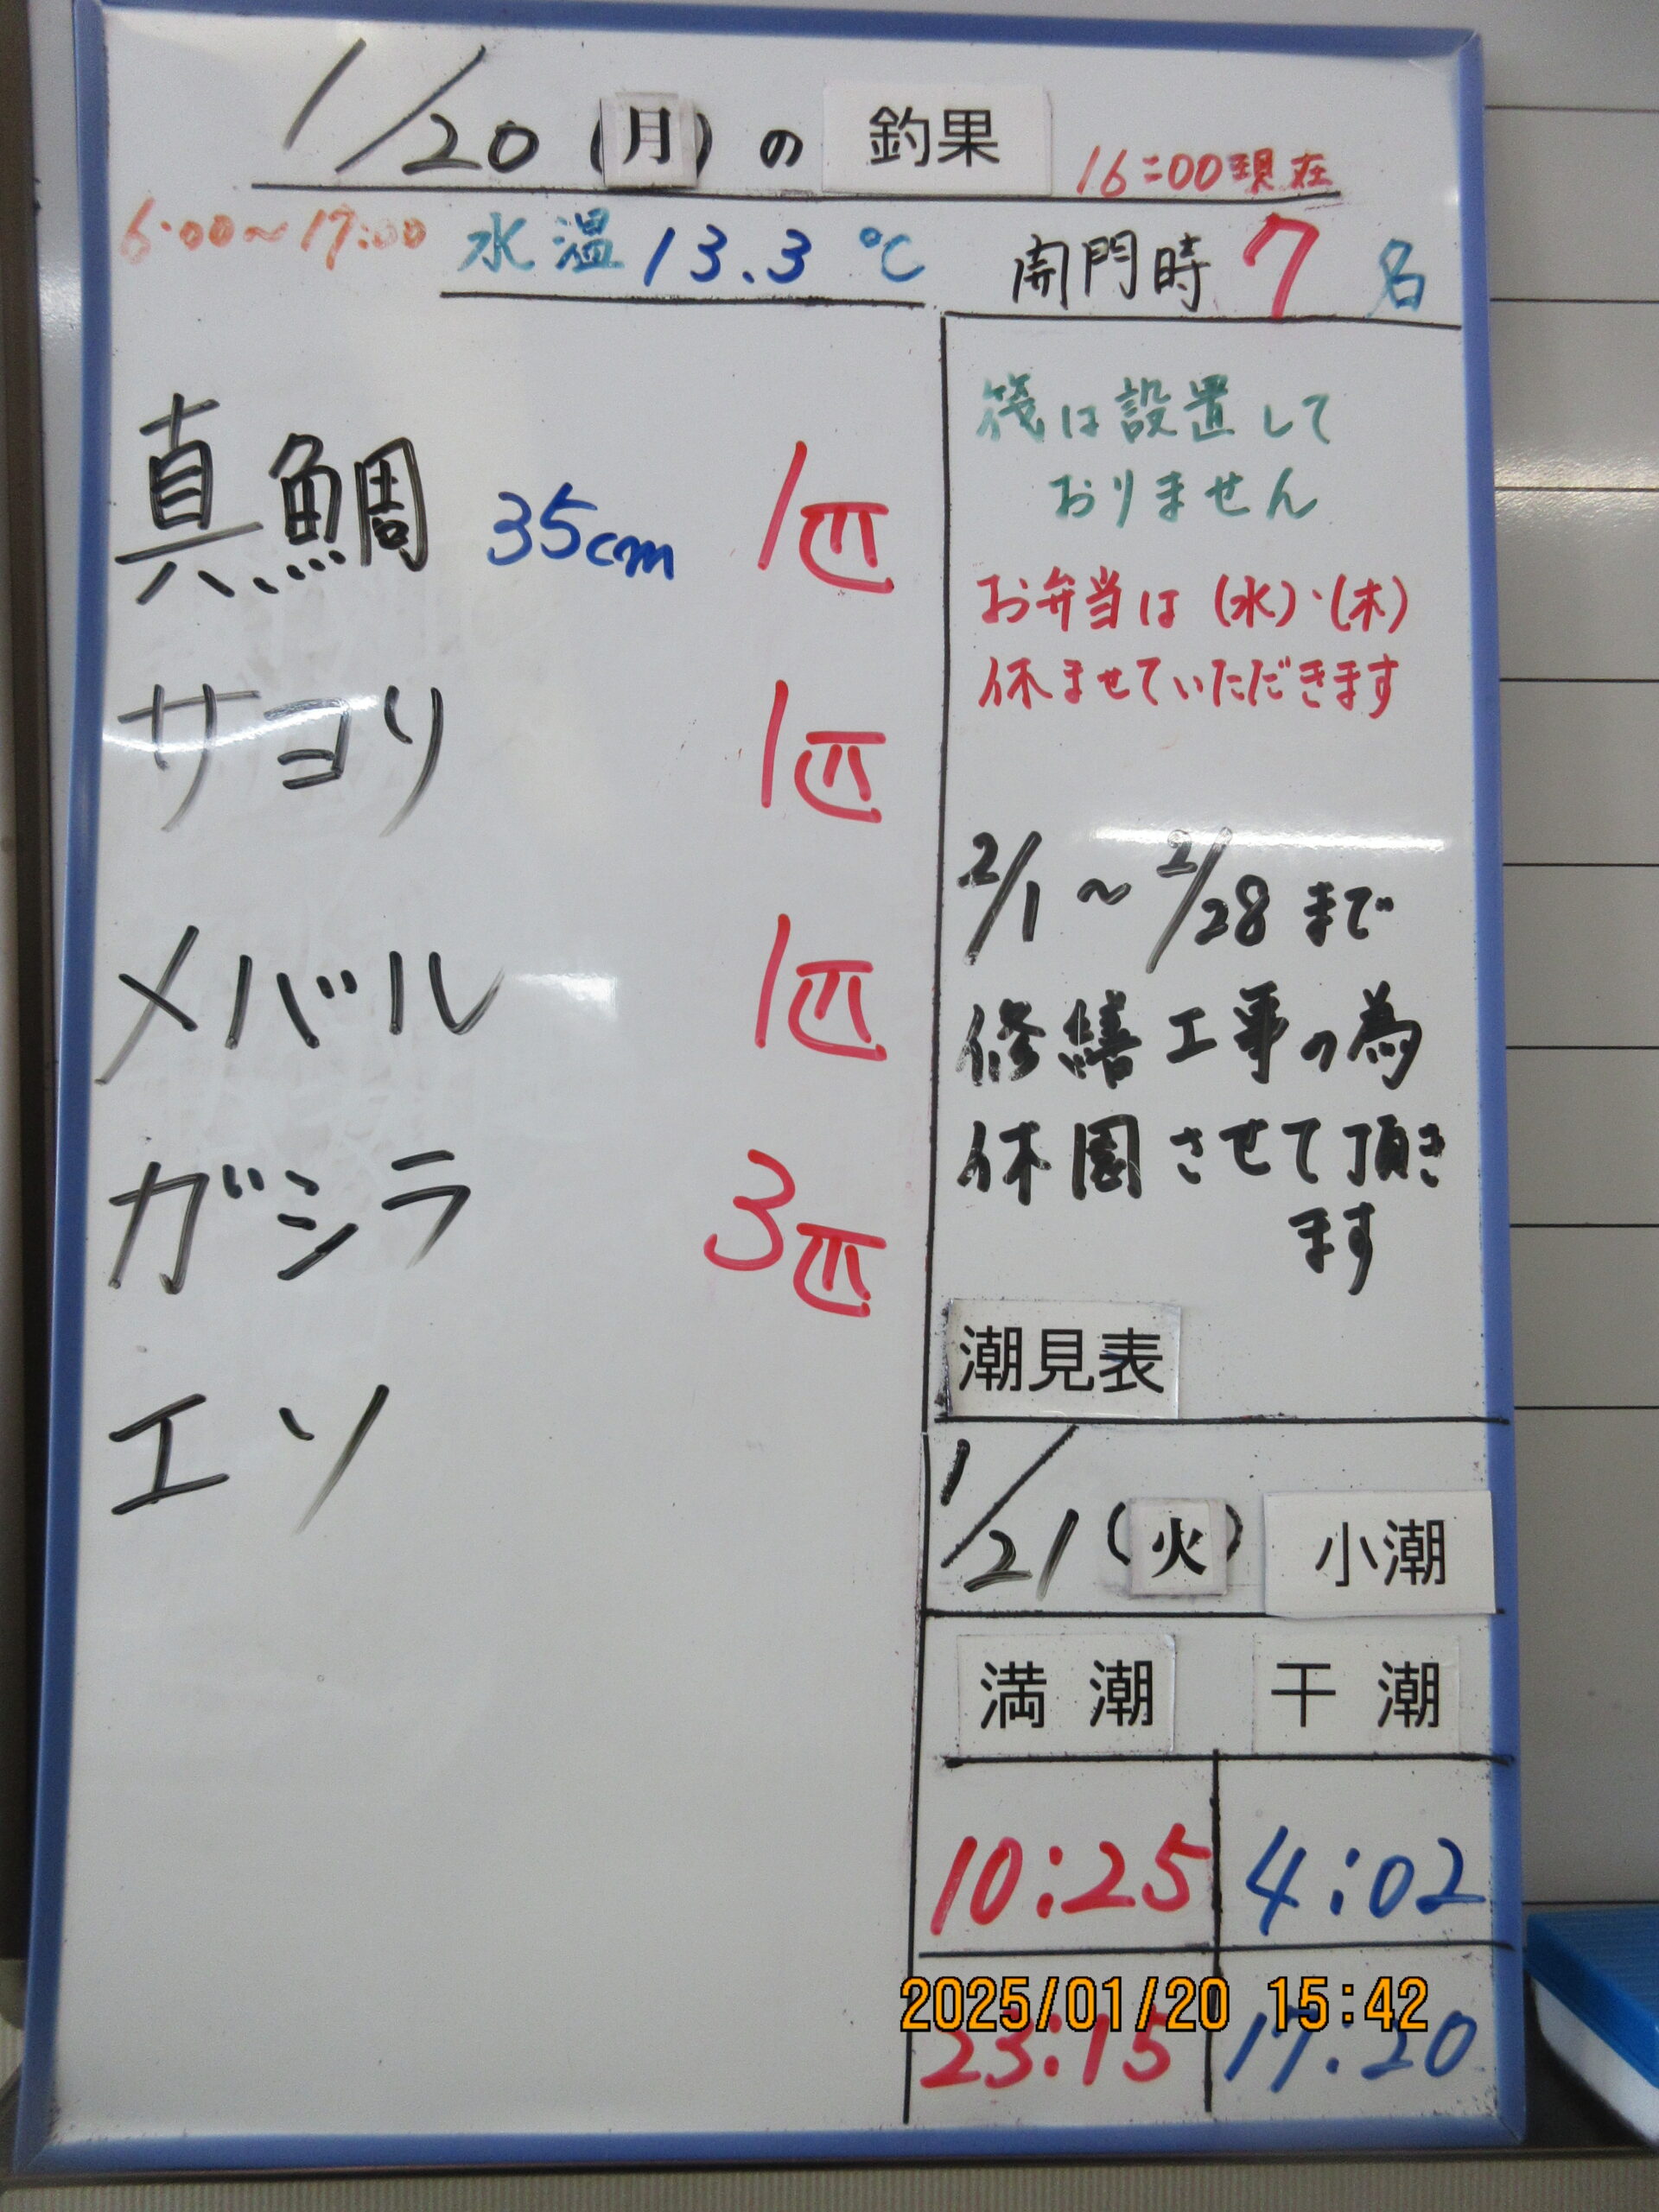 1/20(月)の 釣果 16:00現在
6:00〜17:00 水温 13.3℃ 開門時 7名
真鯛 35cm 1匹
サヨリ 1匹
メバル 1匹
ガシラ 3匹
エソ
筏は設置して
おりません
お弁当は(水)・(木)
休ませていただきます
2/1〜2/28まで
修繕工事の為
休園させて頂き
ます
潮見表
1/21(火) 小潮
満潮 干潮
10:25 4:02
23:15 17:20
2025/01/20 15:42